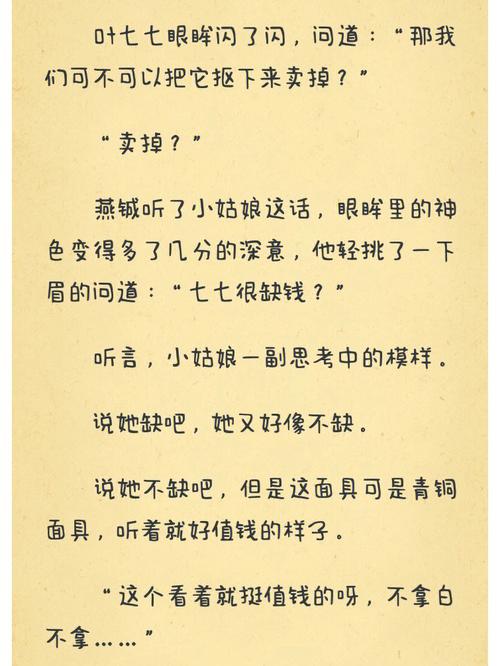 叶七七眼眸闪了闪，问道：“那我
们可不可以把它抠下来卖掉？”
“卖掉？”
燕铖听了小姑娘这话，眼眸里的神
色变得多了几分的深意，他轻挑了一下
眉的问道：“七七很缺钱？”
听言，小姑娘一副思考中的模样。
说她缺吧，她又好像不缺。
说她不缺吧，但是这面具可是青铜
面具，听着就好值钱的样子。
“这个看着就挺值钱的呀，不拿白
不拿……”